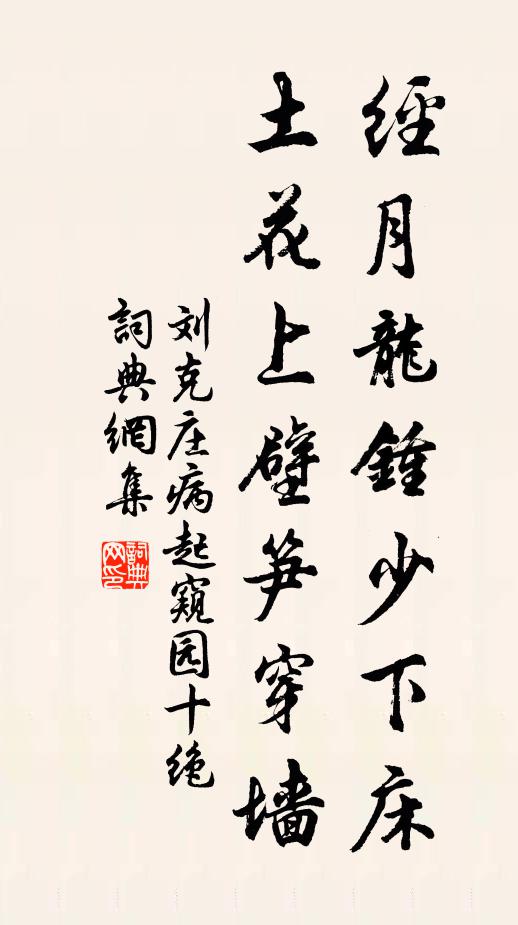 經月龍鍾少下床
土花上壁笋穿墙
刘克庄病起窺园十绝
詞典網集
詞典网印